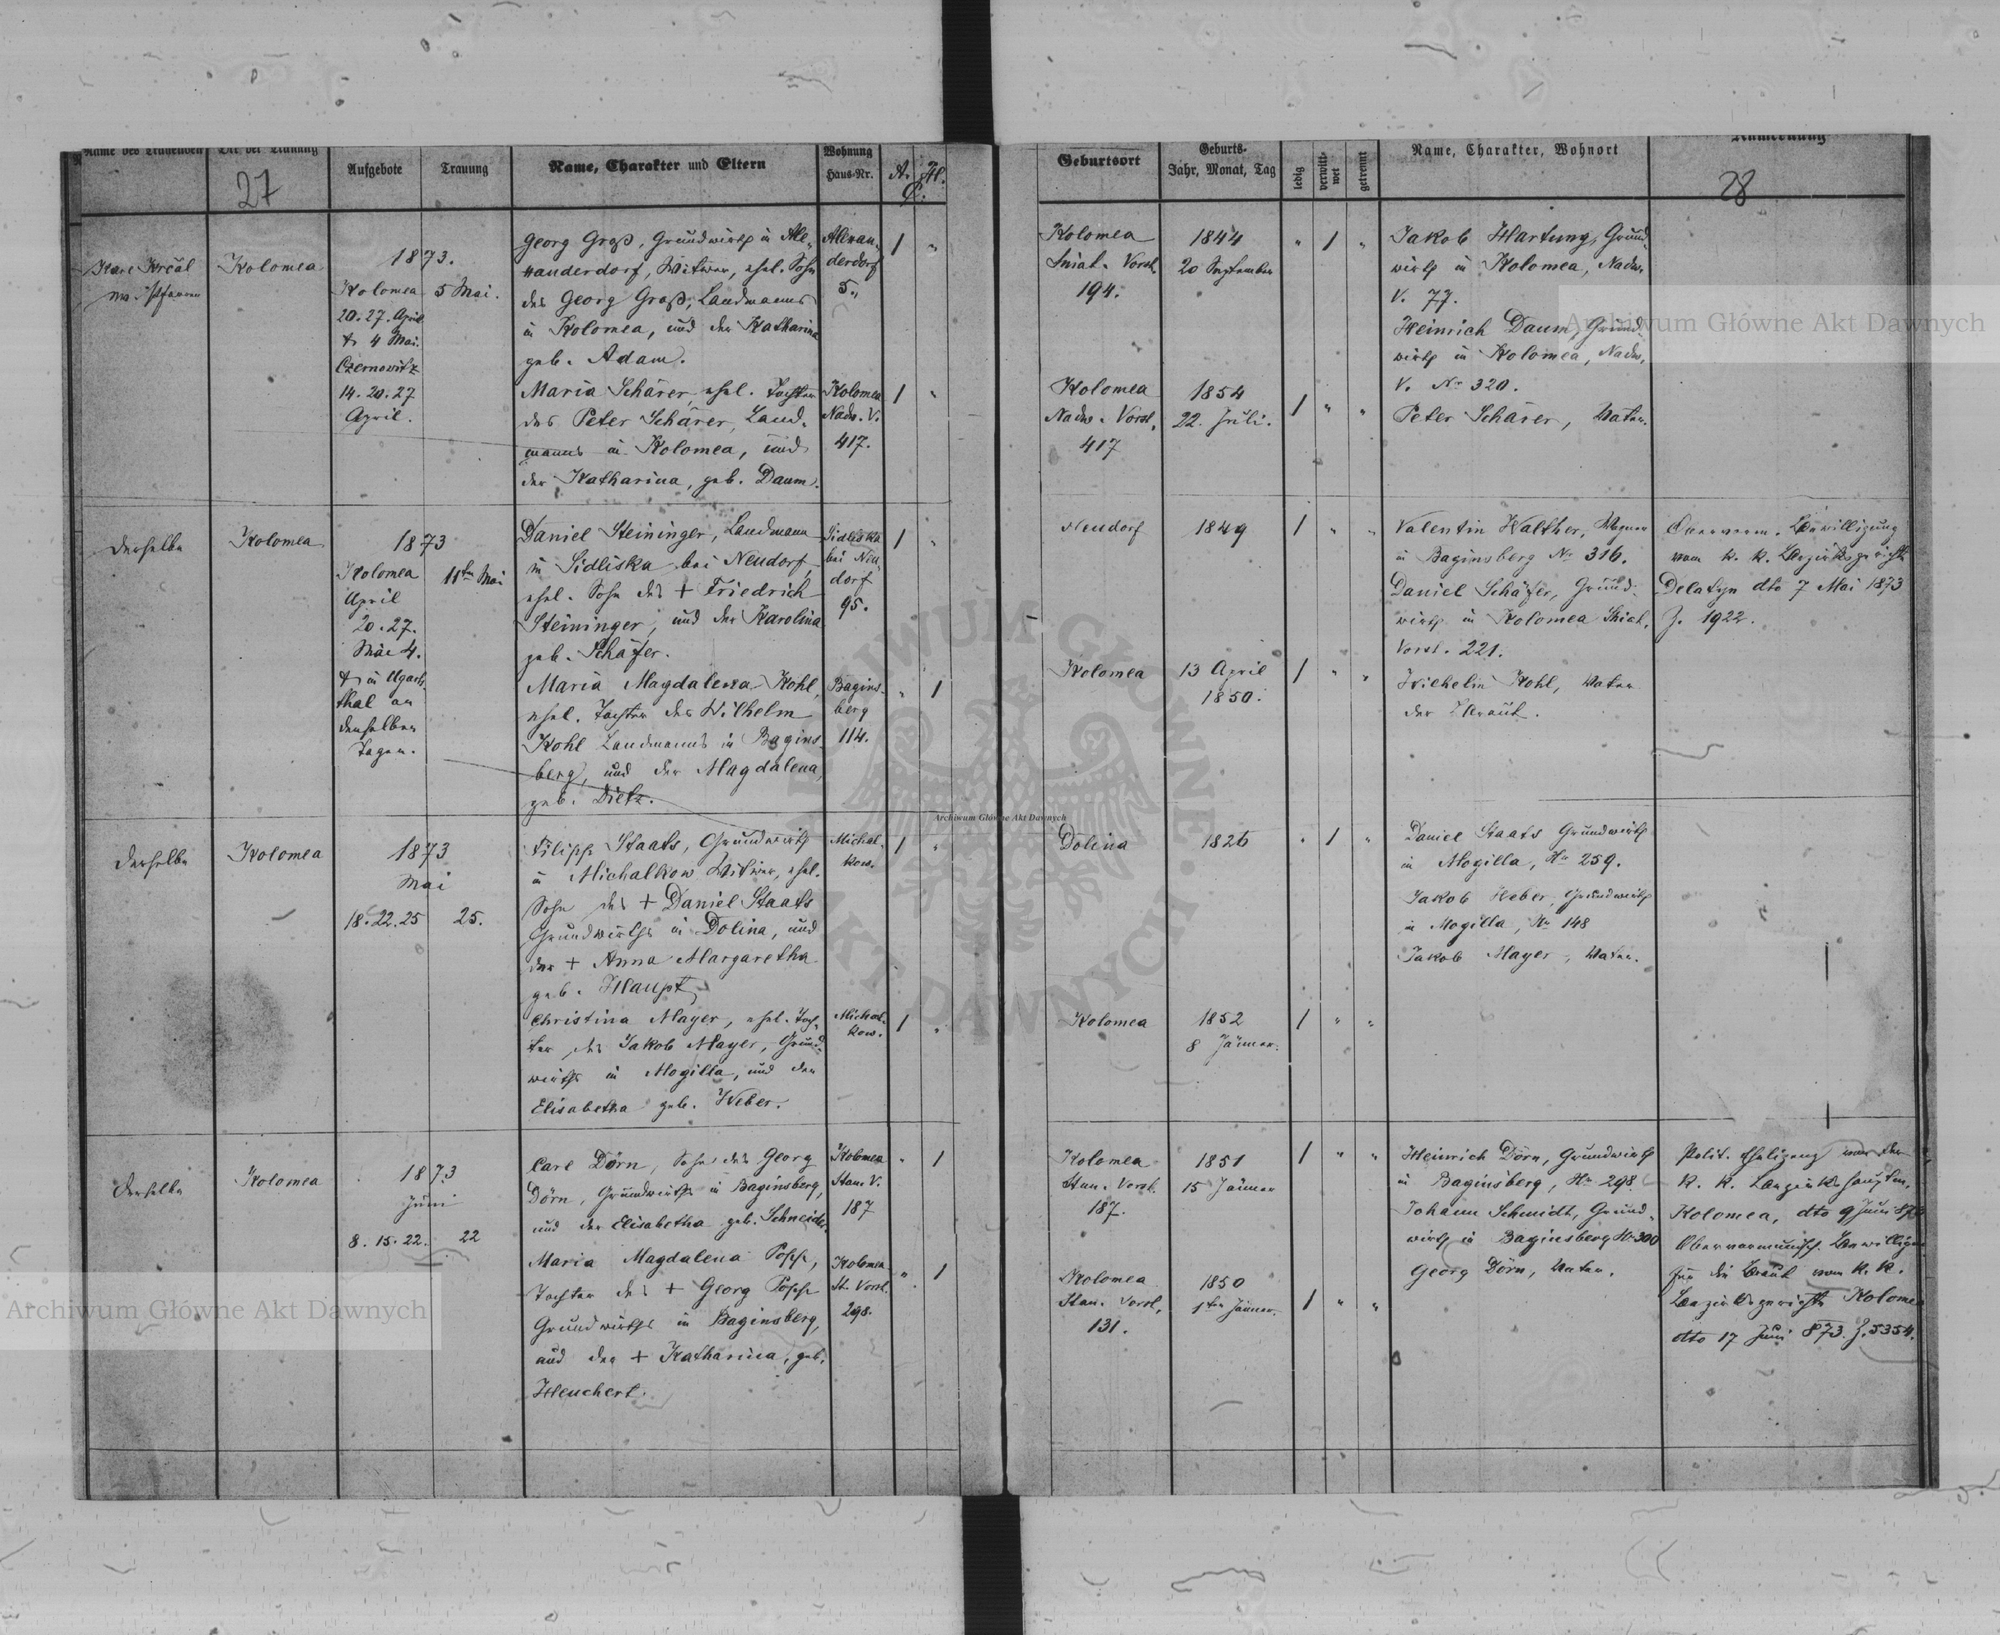 Name des Trauenden
Ort der Trauung
Aufgebote
Trauung
Name, Charakter und Eltern
Wohnung
Haus-Nr.
A. H.
C.
27
Kolomea
1873.
Kolomea
5 Mai.
20. 27. April
& 4 Mai.
Czernowitz
14. 20. 27
April.
Georg Groß, Grundwirth in Ale-
xanderdorf, Witwer, ehel. Sohn
des Georg Groß, Landmanns
in Kolomea, und der Katharina
geb. Adam.
Alexan-
derdorf
5.
1 "
Maria Schärer, ehel. Tochter
des Peter Schärer, Land-
manns in Kolomea, und
der Katharina, geb. Daum.
Kolomea
Nadw. V.
417.
1 "
Derselbe
Kolomea
1873
Kolomea
11ten Mai
April
20. 27.
Mai 4.
& in Ugarts-
thal an
denselben
Tagen.
Daniel Steininger, Landmann
in Sidliska bei Neudorf,
ehel. Sohn des + Friedrich
Steininger, und der Karolina
geb. Schäfer.
Sidliska
bei Neu-
dorf
95.
1 "
Maria Magdalena Kohl,
ehel. Tochter des Wilhelm
Kohl Landmanns in Bagins-
berg, und der Magdalena,
geb. Dietz.
Bagins-
berg
114.
" 1
Derselbe
Kolomea
1873
Mai
18. 22. 25
25.
Filipp Staats, Grundwirth
in Michalkow Witwer, ehel.
Sohn des + Daniel Staats
Grundwirths in Dolina, und
der + Anna Margaretha
geb. Haupt,
Michal-
kow.
1 "
Christina Mayer, ehel. Toch-
ter des Jakob Mayer, Grund-
wirths in Mogilla, und der
Elisabetha geb. Weber.
Michal-
kow.
1 "
Derselbe
Kolomea
1873
Juni
8. 15. 22.
22
Carl Dörn, Sohn des Georg
Dörn, Grundwirths in Baginsberg,
und der Elisabetha geb. Schneider.
Kolomea
Stan. V.
187
" 1
Maria Magdalena
Tochter des + Georg
Grundwirths in Baginsberg,
und der + Katharina, geb.
Heuchert.
Kolomea
St. Vorst.
298.
" 1
Geburtsort
Geburts-
Jahr, Monat, Tag
ledig
verwitt-
wet
getrennt
Name, Charakter, Wohnort
Anmerkung
28
Kolomea
Sniat. Vorst.
194.
1844
20 September
" 1 "
Jakob Hartung, Grund-
wirth in Kolomea, Nadw.
V. 77.
Heinrich Daum, Grund-
wirth in Kolomea, Nadw.
V. Nr 320.
Kolomea
Nadw. Vorst.
417
1854
22. Juli.
1 " "
Peter Schärer, Vater.
Neudorf
1849
1 " "
Valentin Walther, Wagner
in Baginsberg Nr 316.
Daniel Schäfer, Grund-
wirth in Kolomea Sniat.
Vorst. 221.
Bewilligung
vom k. k. Bezirksgerichte
Delatyn dto 7 Mai 1873
Z. 1922.
Kolomea
13 April
1850.
1 " "
Wilhelm Kohl, Vater
der Braut.
Dolina
1826
" 1 "
Daniel Staats Grundwirth
in Mogilla, Nr 259.
Jakob Weber, Grundwirth
in Mogilla, Nr 148
Jakob Mayer, Vater.
Kolomea
1852
8 Jänner.
1 " "
Kolomea
Stan. Vorst.
187.
1851
15 Jänner
1 " "
Heinrich Dörn, Grundwirth
in Baginsberg, Nr 298.
Johann Schmidt, Grund-
wirth in Baginsberg Nr 300
Georg Dörn, Vater.
Polit. von der
k. k. Bezirkshauptm.
Kolomea, dto 9 Juni 873
Obervormundsch. Bewilligung
für die Braut vom k. k.
Bezirksgerichte Kolomea
dto 17 Juni 873. Z. 5354.
Kolomea
Stan. Vorst.
131.
1850
1ten Jänner.
1 " "
Archiwum Główne Akt Dawnych
Archiwum Główne Akt Dawnych
Archiwum Główne Akt Dawnych
ARCHIWUM GŁÓWNE AKT DAWNYCH